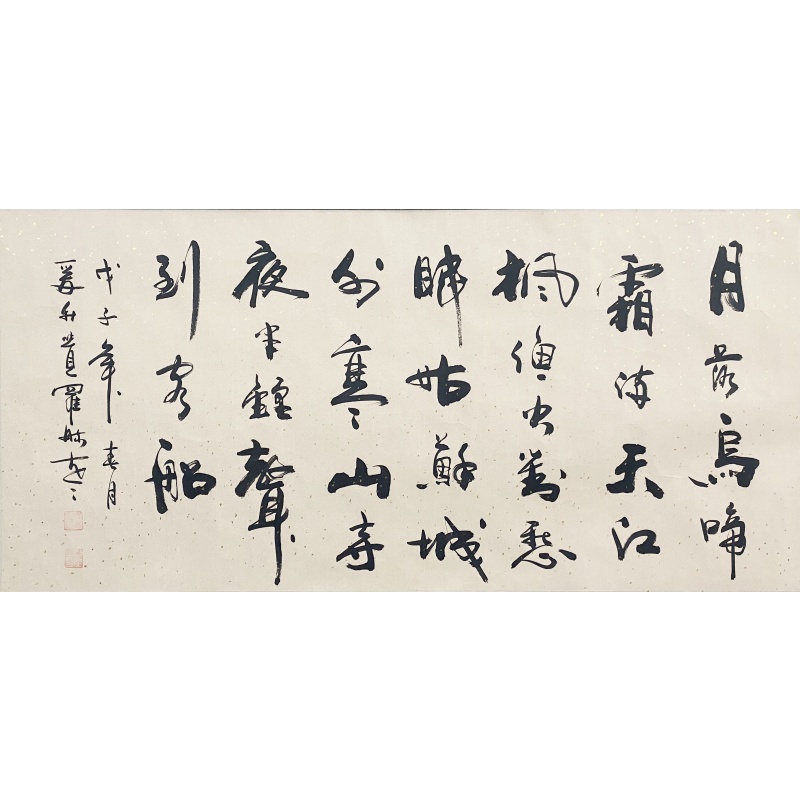 月落烏啼
霜满天江
枫渔火對愁
眠姑蘇城
外寒山寺
夜半鐘聲
到客船
戊子年春月